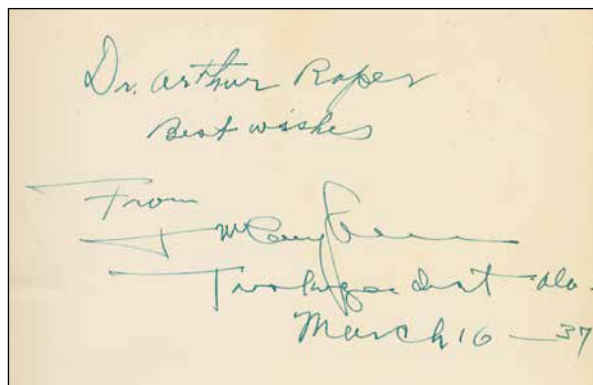 Dr. Arthur Raper
Best wishes
From
Tuskegee Inst Ala.
March 16 — 37